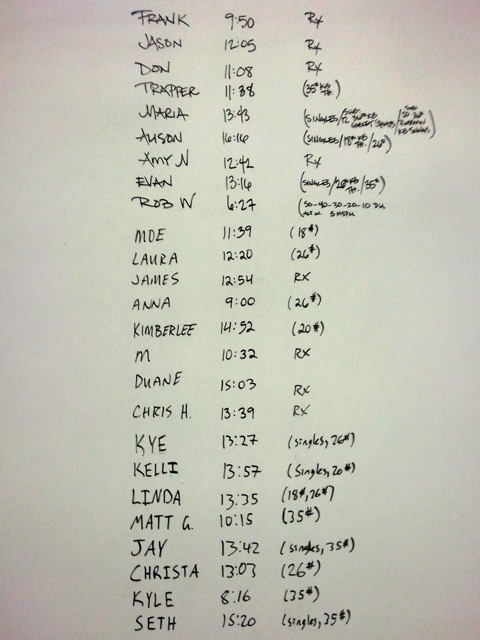 FRANK 9:50 Rx
JASON 12:05 Rx
DON 11:08 Rx
TRAPPER 11:38 (35# KB TH.)
MARIA 13:43 (SINGLES/
ALISON 16:16 (SINGLES/18# KB TH./26#)
AMY N 12:42 Rx
EVAN 13:16 (SINGLES/26# KB TH./35#)
ROB W 6:27 (50-40-30-20-10 DU
MOE 11:39 (18#)
LAURA 12:20 (26#)
JAMES 12:54 RX
ANNA 9:00 (26#)
KIMBERLEE 14:52 (20#)
M 10:32 RX
DUANE 15:03 RX
CHRIS H. 13:39 RX
KYE 13:27 (singles, 26#)
KELLI 13:57 (Singles, 20#)
LINDA 13:35 (18#, 26#)
MATT G. 10:15 (35#)
JAY 13:42 (singles, 35#)
CHRISTA 13:03 (26#)
KYLE 8:16 (35#)
SETH 15:20 (singles, 35#)